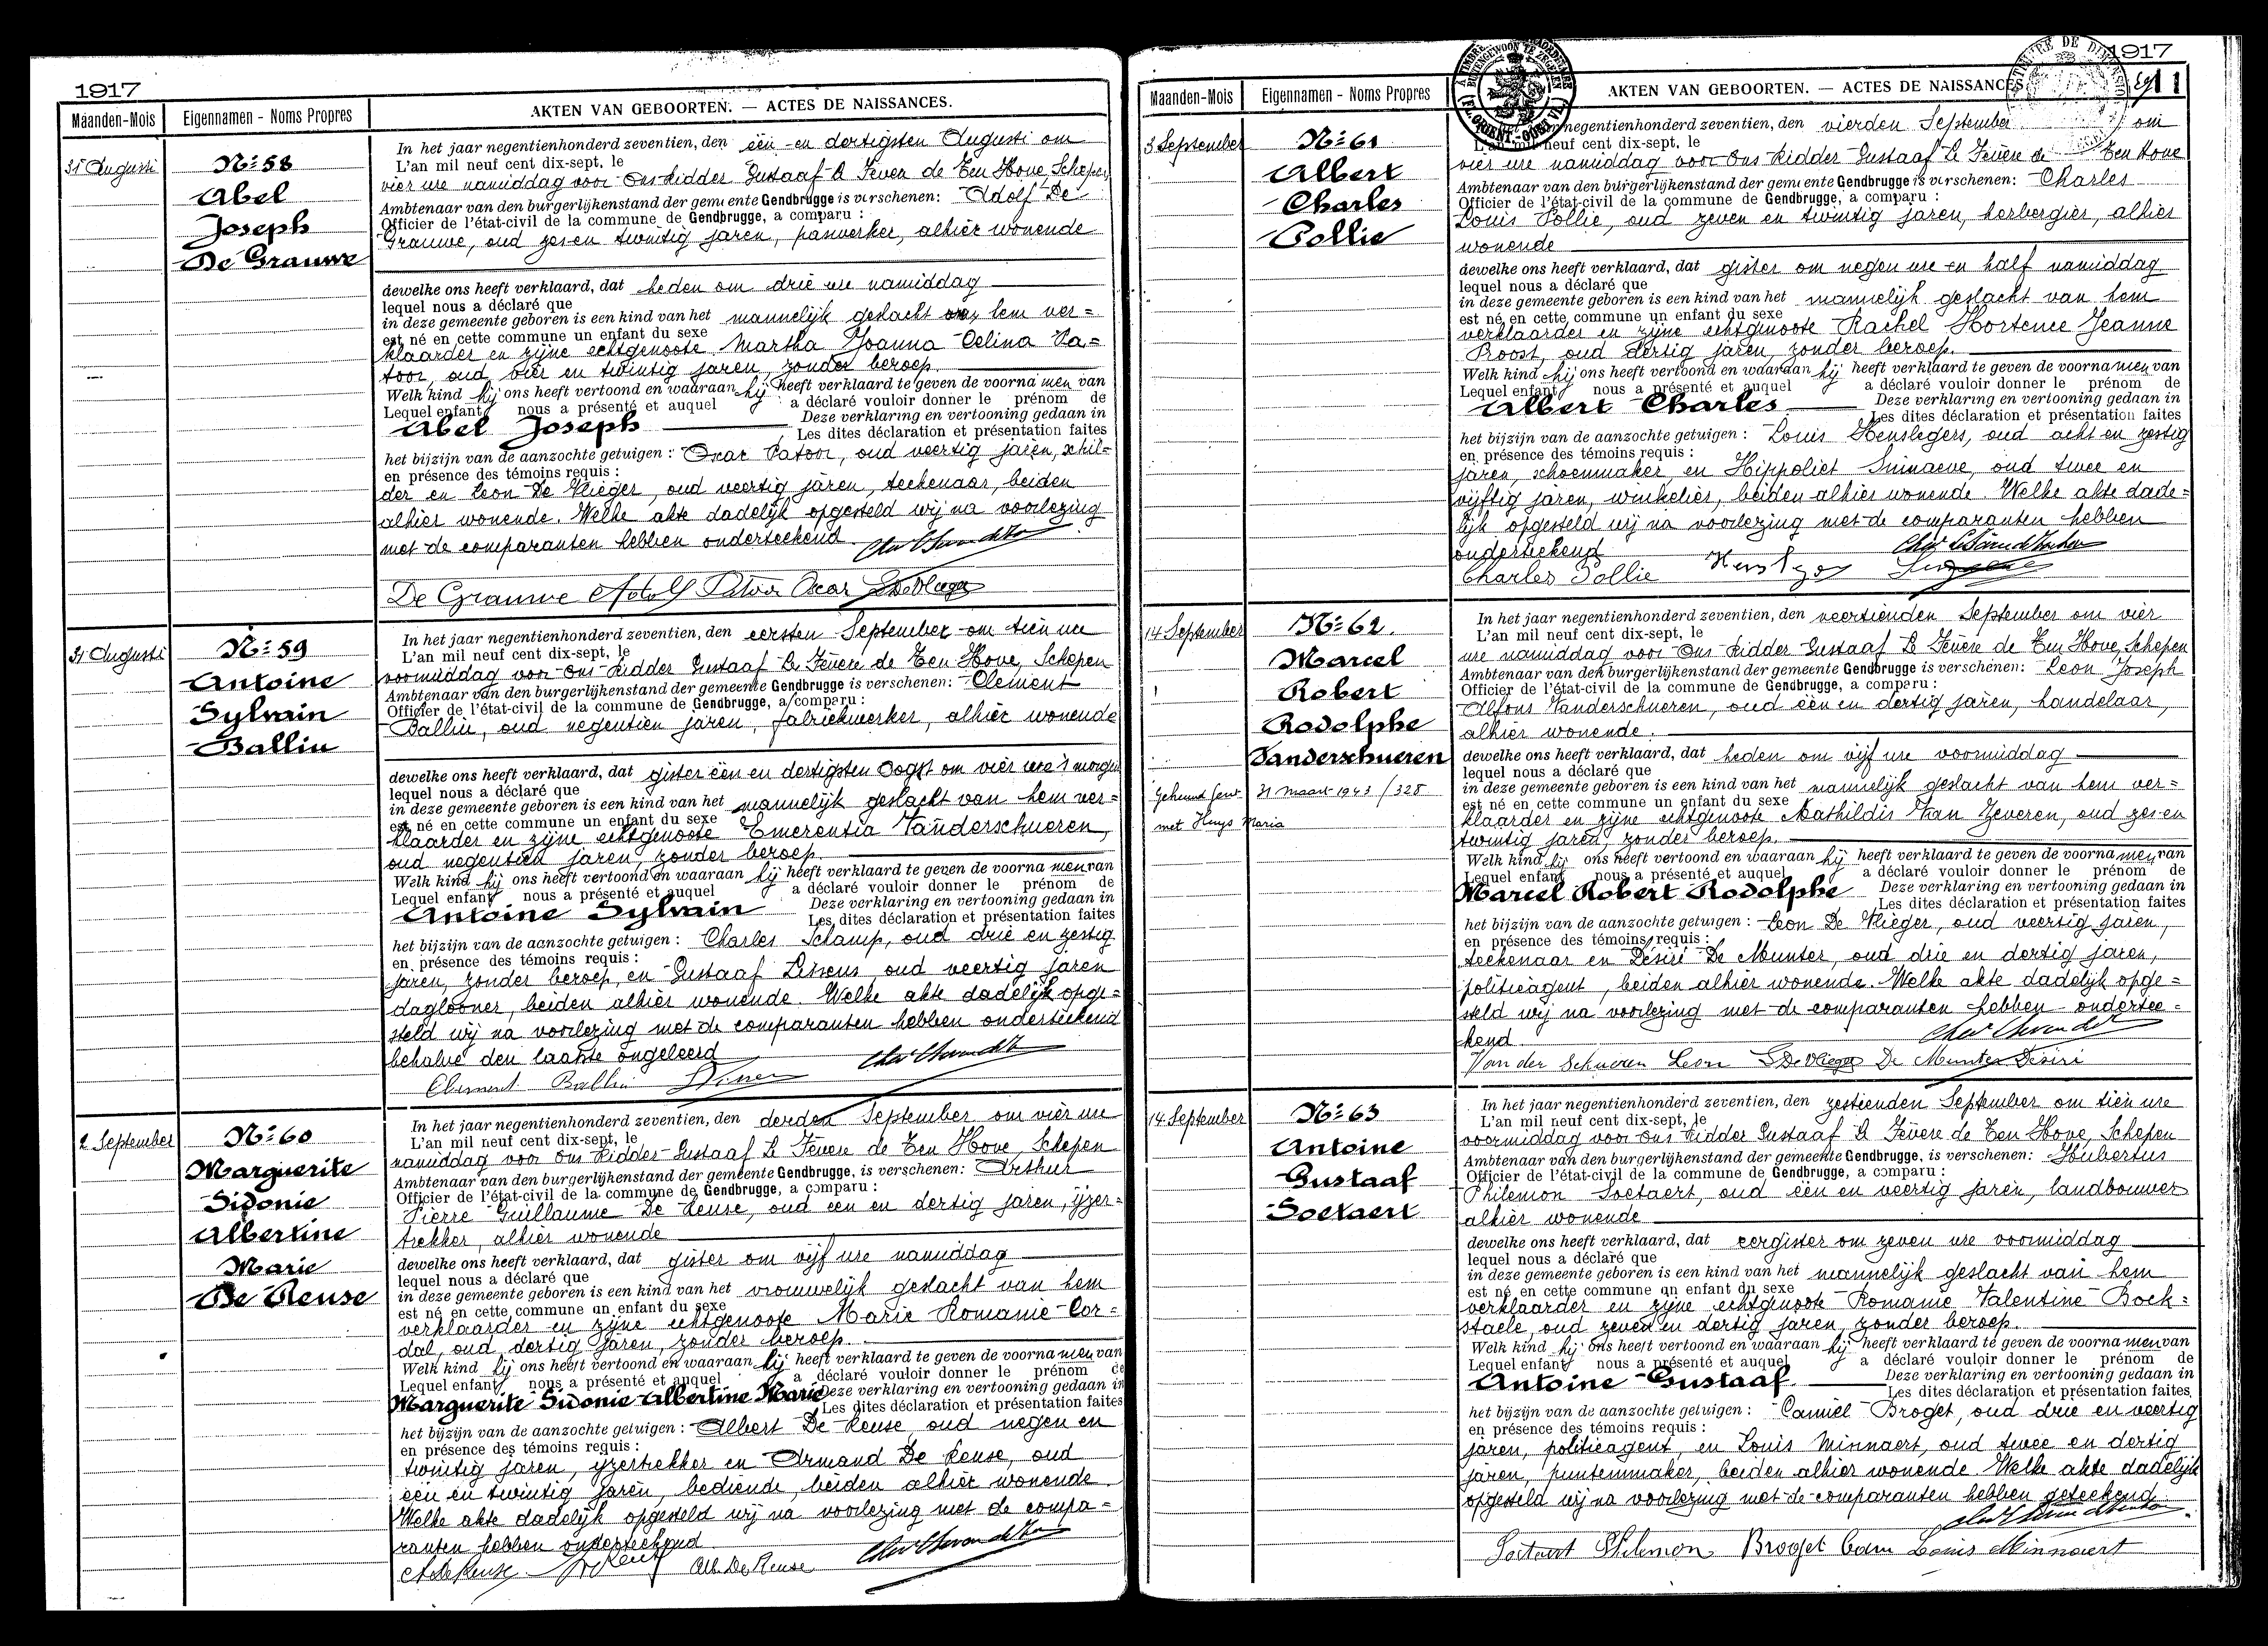 1917
Maanden-Mois
Eigennamen - Noms Propres
AKTEN VAN GEBOORTEN. — ACTES DE NAISSANCES.
31 Augusti
Nº 58
Abel
Joseph
De Grauwe
In het jaar negentienhonderd zeventien, den één en dertigsten Augusti om
L'an mil neuf cent dix-sept, le
vier ure namiddag voor Ons Ridder Gustaaf le Fever de Ten Hove, Schepen
Ambtenaar van den burgerlijkenstand der gemeente Gendbrugge is verschenen: Adolf De
Officier de l'état-civil de la commune de Gendbrugge, a comparu :
Grauwe, oud zes en twintig jaren, panwerker, alhier wonende
dewelke ons heeft verklaard, dat heden om drie ure namiddag
lequel nous a déclaré que
in deze gemeente geboren is een kind van het mannelijk geslacht van hem ver=
est né en cette commune un enfant du sexe
klaarder en zijne echtgenoote Martha Joanna Celina Pa=
toor, oud vier en twintig jaren, zonder beroep
Welk kind hij ons heeft vertoond en waaraan hij heeft verklaard te geven de voornamen van
Lequel enfant nous a présenté et auquel a déclaré vouloir donner le prénom de
Abel Joseph Deze verklaring en vertooning gedaan in
Les dites déclaration et présentation faites
het bijzijn van de aanzochte getuigen : Oscar Patoor, oud veertig jaren, schil=
en présence des témoins requis :
der en Leon De Vlieger, oud veertig jaren, teekenaar, beiden
alhier wonende. Welke akte dadelijk opgesteld wij na voorlezing
met de comparanten hebben onderteekend
De Grauwe Adolf Patoor Oscar L De Vlieger
31 Augusti
Nº 59
Antoine
Sylvain
Ballin
In het jaar negentienhonderd zeventien, den eersten September om tien ure
L'an mil neuf cent dix-sept, le
voormiddag voor Ons Ridder Gustaaf le Fevere de Ten Hove, Schepen
Ambtenaar van den burgerlijkenstand der gemeente Gendbrugge is verschenen: Clement
Officier de l'état-civil de la commune de Gendbrugge, a comparu :
Ballin, oud negentien jaren, fabriekwerker, alhier wonende
dewelke ons heeft verklaard, dat gister één en dertigsten Oogst om vier ure 's morgen
lequel nous a déclaré que
in deze gemeente geboren is een kind van het mannelijk geslacht van hem ver=
est né en cette commune un enfant du sexe
klaarder en zijne echtgenoote Emerentia Vanderschueren,
oud negentien jaren, zonder beroep.
Welk kind hij ons heeft vertoond en waaraan hij heeft verklaard te geven de voornamen van
Lequel enfant nous a présenté et auquel a déclaré vouloir donner le prénom de
Antoine Sylvain Deze verklaring en vertooning gedaan in
Les dites déclaration et présentation faites
het bijzijn van de aanzochte getuigen : Charles Schamp, oud drie en zestig
en présence des témoins requis :
jaren, zonder beroep, en Gustaaf Lissens oud veertig jaren
daglooner, beiden alhier wonende. Welke akte dadelijk opge=
steld wij na voorlezing met de comparanten hebben onderteekend
behalve den laatste ongeleerd
Clement Ballin
2 September
Nº 60
Marguerite
Sidonie
Albertine
Marie
De Reuse
In het jaar negentienhonderd zeventien, den derden September om vier ure
L'an mil neuf cent dix-sept, le
namiddag voor Ons Ridder Gustaaf le Fevere de Ten Hove, Schepen
Ambtenaar van den burgerlijkenstand der gemeente Gendbrugge, is verschenen: Arthur
Officier de l'état-civil de la commune de Gendbrugge, a comparu :
Pierre Guillaume De Reuse, oud een en dertig jaren, ijzer=
trekker, alhier wonende
dewelke ons heeft verklaard, dat gister om vijf ure namiddag
lequel nous a déclaré que
in deze gemeente geboren is een kind van het vrouwelijk geslacht van hem
est né en cette commune un enfant du sexe
verklaarder en zijne echtgenoote Marie Romanie Cor=
dal, oud dertig jaren, zonder beroep.
Welk kind hij ons heeft vertoond en waaraan hij heeft verklaard te geven de voornamen van
Lequel enfant nous a présenté et auquel a déclaré vouloir donner le prénom de
Marguerite Sidonie Albertine Marie Deze verklaring en vertooning gedaan in
Les dites déclaration et présentation faites
het bijzijn van de aanzochte getuigen : Albert De Reuse, oud negen en
en présence des témoins requis :
twintig jaren, ijzertrekker en Armand De Reuse, oud
één en twintig jaren, bediende, beiden alhier wonende.
Welke akte dadelijk opgesteld wij na voorlezing met de compa=
ranten hebben onderteekend
A De Reuse Alb. De Reuse
1917
Maanden-Mois
Eigennamen - Noms Propres
AKTEN VAN GEBOORTEN. — ACTES DE NAISSANCES.
11
3 September
Nº 61
Albert
Charles
Pollie
negentienhonderd zeventien, den vierden September om
L'an mil neuf cent dix-sept, le
vier ure namiddag voor Ons Ridder Gustaaf le Fevere de Ten Hove
Ambtenaar van den burgerlijkenstand der gemeente Gendbrugge is verschenen: Charles
Officier de l'état-civil de la commune de Gendbrugge, a comparu :
Louis Pollie, oud zeven en twintig jaren, herbergier, alhier
wonende
dewelke ons heeft verklaard, dat gister om negen ure en half namiddag
lequel nous a déclaré que
in deze gemeente geboren is een kind van het mannelijk geslacht van hem
est né en cette commune un enfant du sexe
verklaarder en zijne echtgenoote Rachel Hortence Jeanne
Proost, oud dertig jaren, zonder beroep.
Welk kind hij ons heeft vertoond en waaraan hij heeft verklaard te geven de voornamen van
Lequel enfant nous a présenté et auquel a déclaré vouloir donner le prénom de
Albert Charles Deze verklaring en vertooning gedaan in
Les dites déclaration et présentation faites
het bijzijn van de aanzochte getuigen : Louis Henslegers, oud acht en zestig
en présence des témoins requis :
jaren, schoenmaker en Hippoliet Suinaeve, oud twee en
vijftig jaren, winkelier, beiden alhier wonende. Welke akte dade=
lijk opgesteld wij na voorlezing met de comparanten hebben
onderteekend
Charles Pollie
14 September
Nº 62.
Marcel
Robert
Rodolphe
Vanderschueren
Gehuwd Gent 31 Maart 1943 / 328
met Huys Maria
In het jaar negentienhonderd zeventien, den veertienden September om vier
L'an mil neuf cent dix-sept, le
ure namiddag voor Ons Ridder Gustaaf le Fevere de Ten Hove, Schepen
Ambtenaar van den burgerlijkenstand der gemeente Gendbrugge is verschenen: Leon Joseph
Officier de l'état-civil de la commune de Gendbrugge, a comparu :
Alfons Vanderschueren, oud één en dertig jaren, handelaar,
alhier wonende.
dewelke ons heeft verklaard, dat heden om vijf ure voormiddag
lequel nous a déclaré que
in deze gemeente geboren is een kind van het mannelijk geslacht van hem ver=
est né en cette commune un enfant du sexe
klaarder en zijne echtgenoote Mathildis Van Zeveren, oud zes en
twintig jaren, zonder beroep.
Welk kind hij ons heeft vertoond en waaraan hij heeft verklaard te geven de voornamen van
Lequel enfant nous a présenté et auquel a déclaré vouloir donner le prénom de
Marcel Robert Rodolphe Deze verklaring en vertooning gedaan in
Les dites déclaration et présentation faites
het bijzijn van de aanzochte getuigen : Leon De Vlieger, oud veertig jaren,
en présence des témoins requis :
teekenaar en Désiré De Munter, oud drie en dertig jaren,
politieagent, beiden alhier wonende. Welke akte dadelijk opge=
steld wij na voorlezing met de comparanten hebben ondertee=
kend
Van der Schueren Leon L De Vlieger De Munter Désiré
14 September
Nº 63
Antoine
Gustaaf
Soetaert
In het jaar negentienhonderd zeventien, den zestienden September om tien ure
L'an mil neuf cent dix-sept, le
voormiddag voor Ons Ridder Gustaaf le Fevere de Ten Hove, Schepen
Ambtenaar van den burgerlijkenstand der gemeente Gendbrugge, is verschenen: Hubertus
Officier de l'état-civil de la commune de Gendbrugge, a comparu :
Philemon Soetaert, oud één en veertig jaren, landbouwer
alhier wonende
dewelke ons heeft verklaard, dat eergister om zeven ure voormiddag
lequel nous a déclaré que
in deze gemeente geboren is een kind van het mannelijk geslacht van hem
est né en cette commune un enfant du sexe
verklaarder en zijne echtgenoote Romanie Valentine Boek=
staele, oud zeven en dertig jaren, zonder beroep.
Welk kind hij ons heeft vertoond en waaraan hij heeft verklaard te geven de voornamen van
Lequel enfant nous a présenté et auquel a déclaré vouloir donner le prénom de
Antoine Gustaaf Deze verklaring en vertooning gedaan in
Les dites déclaration et présentation faites
het bijzijn van de aanzochte getuigen : Camiel Broget, oud drie en veertig
en présence des témoins requis :
jaren, politieagent, en Louis Minnaert, oud twee en dertig
jaren, puntenmaker, beiden alhier wonende. Welke akte dadelijk
opgesteld wij na voorlezing met de comparanten hebben geteekend.
Soetaert Philemon Broget Cam Louis Minnaert